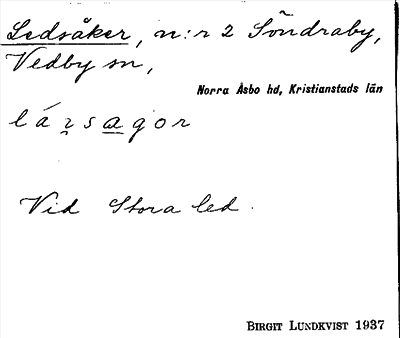 Ledsåker, n:r 2 Söndraby,
Vedby sn,
Norra Åsbo hd, Kristianstads län
l á ɀ s a g o r
Vid Stora led.
BIRGIT LUNDKVIST 1937